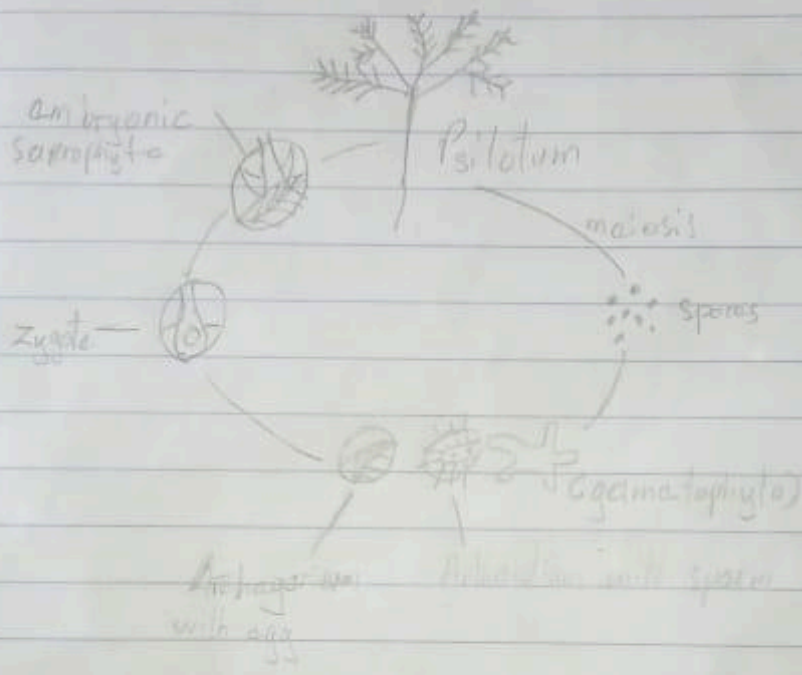 embryonic
saprophyte
Psilotum
meiosis
spores
zygote
(gametophyte)
Archegonium
with egg
with sperm